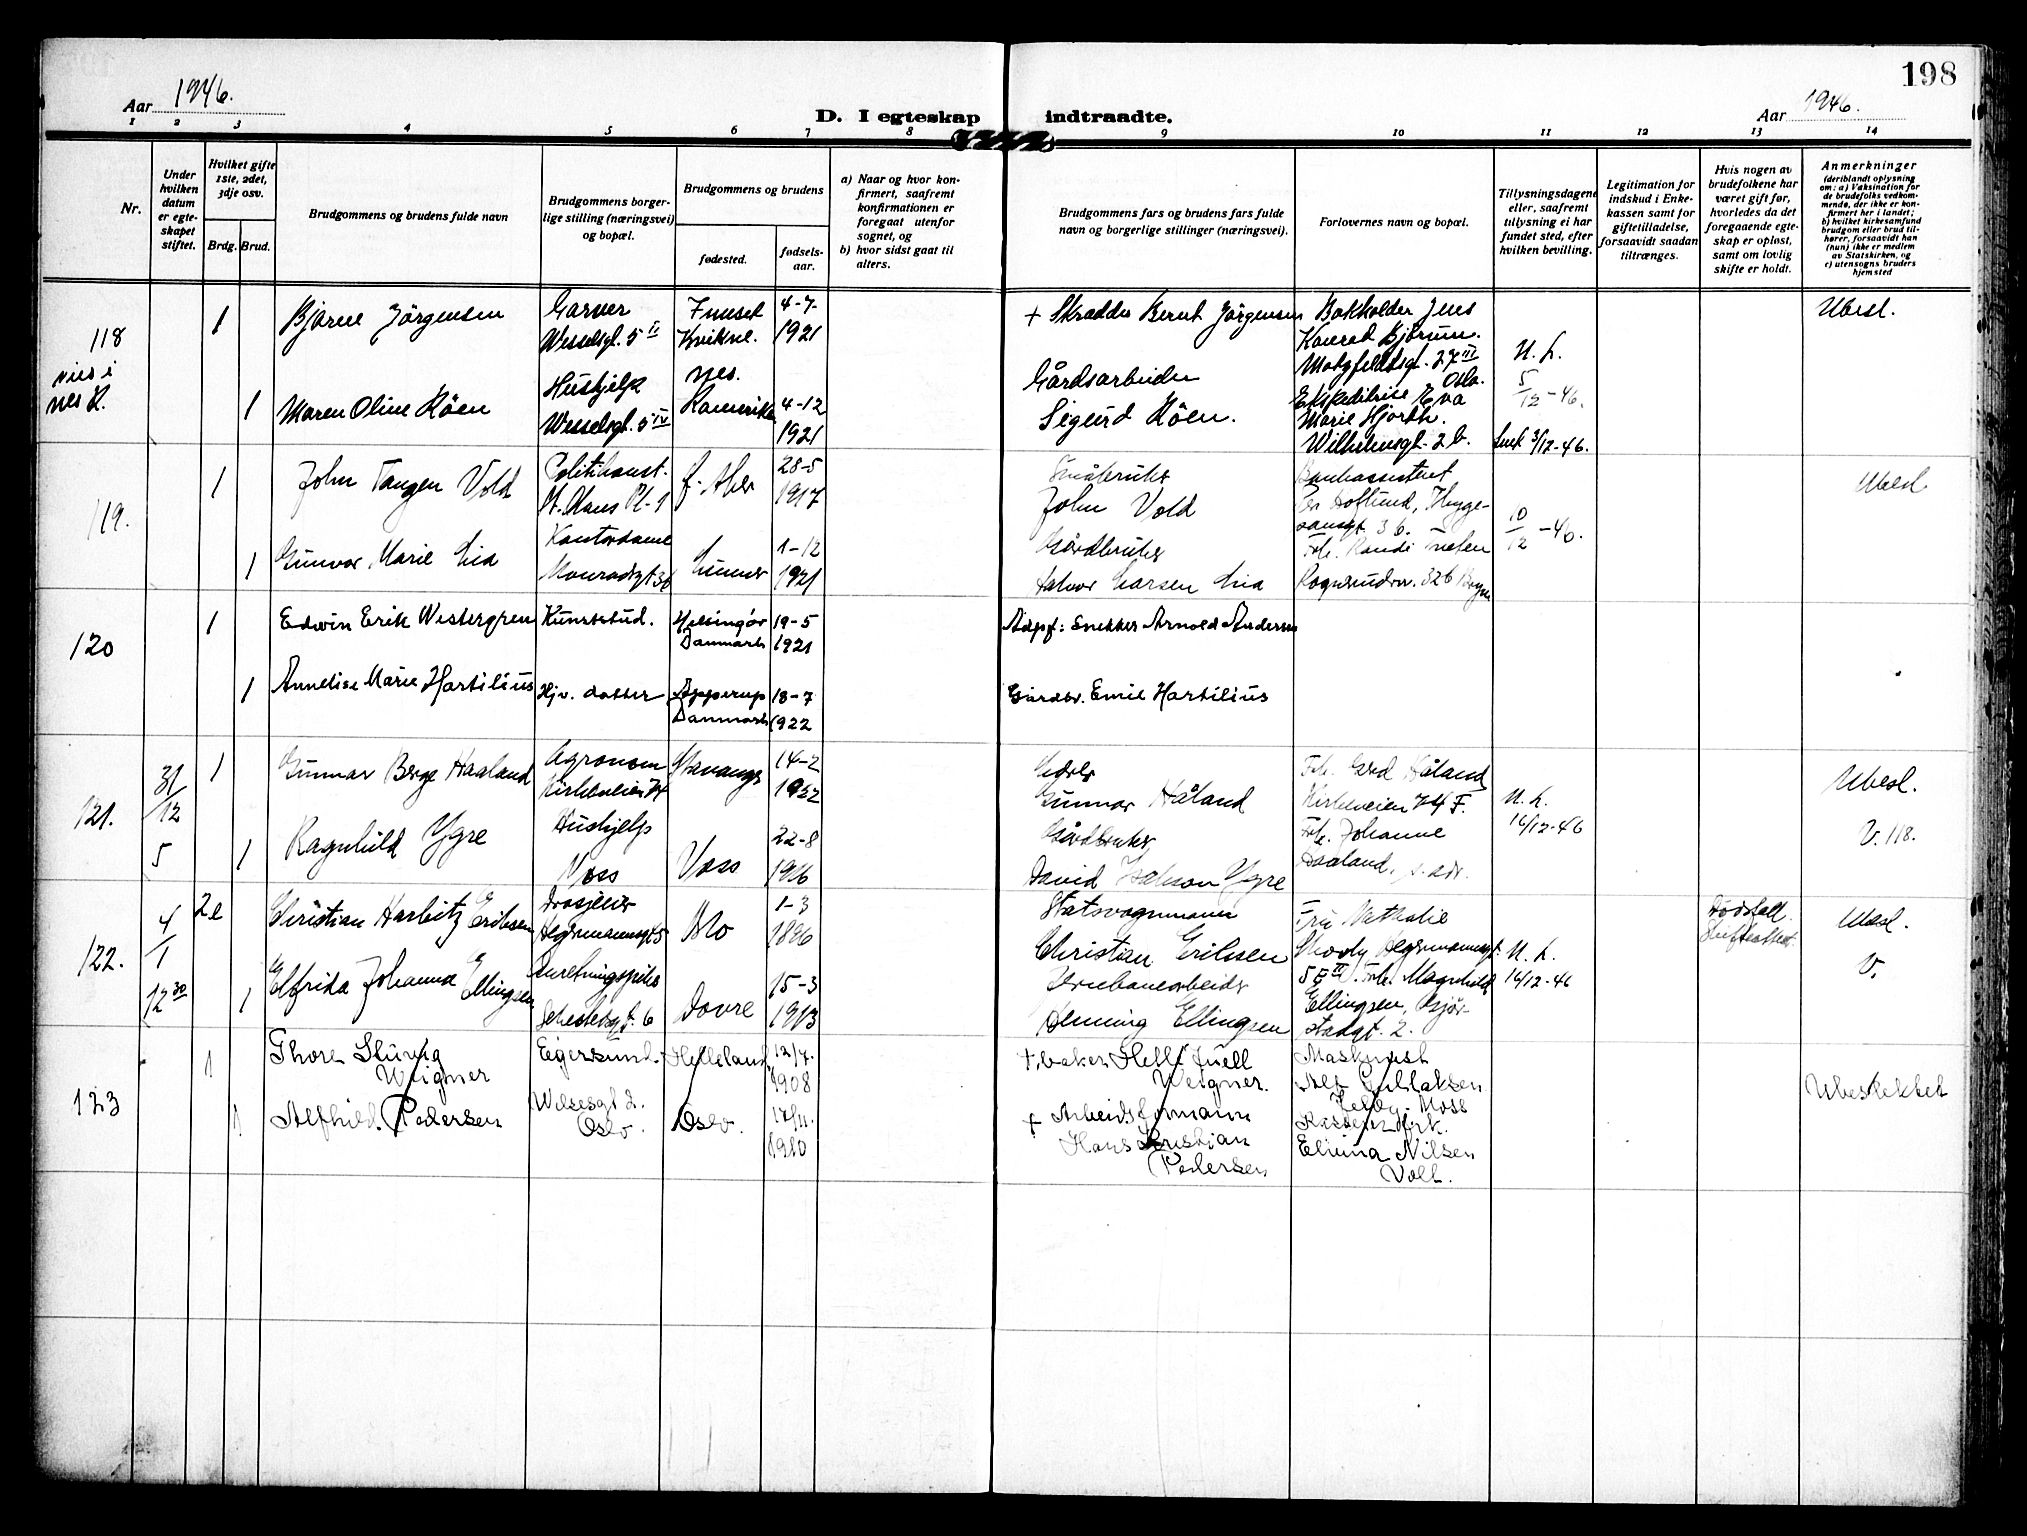 198
Aar 1946.
D. I egteskap indtraadte.
Aar 1946.
1 2 3 4 5 6 7 8 9 10 11 12 13 14
Nr.
Under
hvilken
datum
er egte-
skapet
stiftet.
Hvilket gifte
1ste, 2det,
3dje osv.
Brdg. Brud.
Brudgommens og brudens fulde navn
Brudgommens borger-
lige stilling (næringsvei)
og bopæl.
Brudgommens og brudens
fødested.
fødsels-
aar.
a) Naar og hvor kon-
firmert, saafremt
konfirmationen er
foregaat utenfor
sognet, og
b) hvor sidst gaat til
alters.
Brudgommens fars og brudens fars fulde
navn og borgerlige stillinger (næringsvei).
Forlovernes navn og bopæl.
Tillysningsdagene
eller, saafremt
tillysning ei har
fundet sted, efter
hvilken bevilling.
Legitimation for
indskud i Enke-
kassen samt for
giftetilladelse,
forsaavidt saadan
tiltrænges.
Hvis nogen av
brudefolkene har
været gift før,
hvorledes da det
foregaaende egte-
skap er opløst,
samt om lovlig
skifte er holdt.
Anmerkninger
(deriblandt oplysning
om: a) Vaksination for
de brudefolks vedkom-
mende, der ikke er kon-
firmert her i landet;
b) hvilket kirkesamfund
brudgom eller brud til-
hører, forsaavidt han
(hun) ikke er medlem
av Statskirken, og
c) utensogns bruders
hjemsted
118
1
Bjarne Jörgensen
Garver
Wesselsgt. 5 II
Kvikne.
4-7-
1921
+ Skrædder Bernt Jörgensen
Bokholder Jens
Konrad Bjørum.
27 III
Oslo.
Ubesl.
vies i
Nes K.
1
Maren Oline Köen
Hushjelp
Wesselsgt. 5 IV
Nes.
4-12
1921
Gårdsarbeider
Sigurd Köen.
Eva
Marie Hjorth.
Wilhelmsgt. 2 b.
U. L.
5/12-46.
3/12-46.
119.
1
John Tangen Vold
Politikonst.
St. Hans Pl. 1
28-5
1917
Småbruker
John Vold
Bankassistent
10/12-46.
Ubesl
1
Gunvor Marie Lia
Kontordame
Lunner
1-12
1921
Gårdbruker
Halvor Larsen Lia
120
1
Edwin Erik Westergren
Kunststud.
Helsingør
Danmark
19-5
1921
Adpf: Snekker Arnold Andersen
1
Annelise Marie Hartilius
Hjv. datter
Apperup
Danmark
18-7
1922
Gårdbr. Emil Hartilius
121.
31/12
5
1
Gunnar Berge Haaland
Agronom
Kirkeveien 74
Stavanger
14-2
1922
Gunnar Håland
Frk. Gerd Håland
Kirkeveien 74 F.
U. L.
16/12-46
Ubesl.
V. 118.
1
Ragnhild Ygre
Hushjelp
Voss
Voss
22-8
1916
Gårdbruker
David Ygre
Frk. Johanne
Haaland, s. adr.
122.
4/1
12 30
2e
Christian Harbitz Eriksen
Drosjeeier
Mo
1-3
1886
Statsvognmann
Christian Eriksen
Fru Nathalie
U. L.
16/12-46
Dødsfall.
Skifteattest.
Ubesl.
V.
1
Elfrida Johanna Ellingsen
Dovre
15-3
1913
Jernbanearbeider
Henning Ellingsen
Frk. Magnhild
Ellingsen,
123
1
Thore Lüvig
Weigner
Egersund.
Helleland
12/7.
1908
+ baker Helli Juell
Weigner.
Maskinist
Alf Gullaksen
Jeløy. Moss
Ubeslektet
1
Alfhild Pedersen
Wilsesgt 2.
Oslo.
Oslo.
17/11.
1910
+ Arbeidsformann
Hans Kristian
Pedersen
Elvina Nilsen